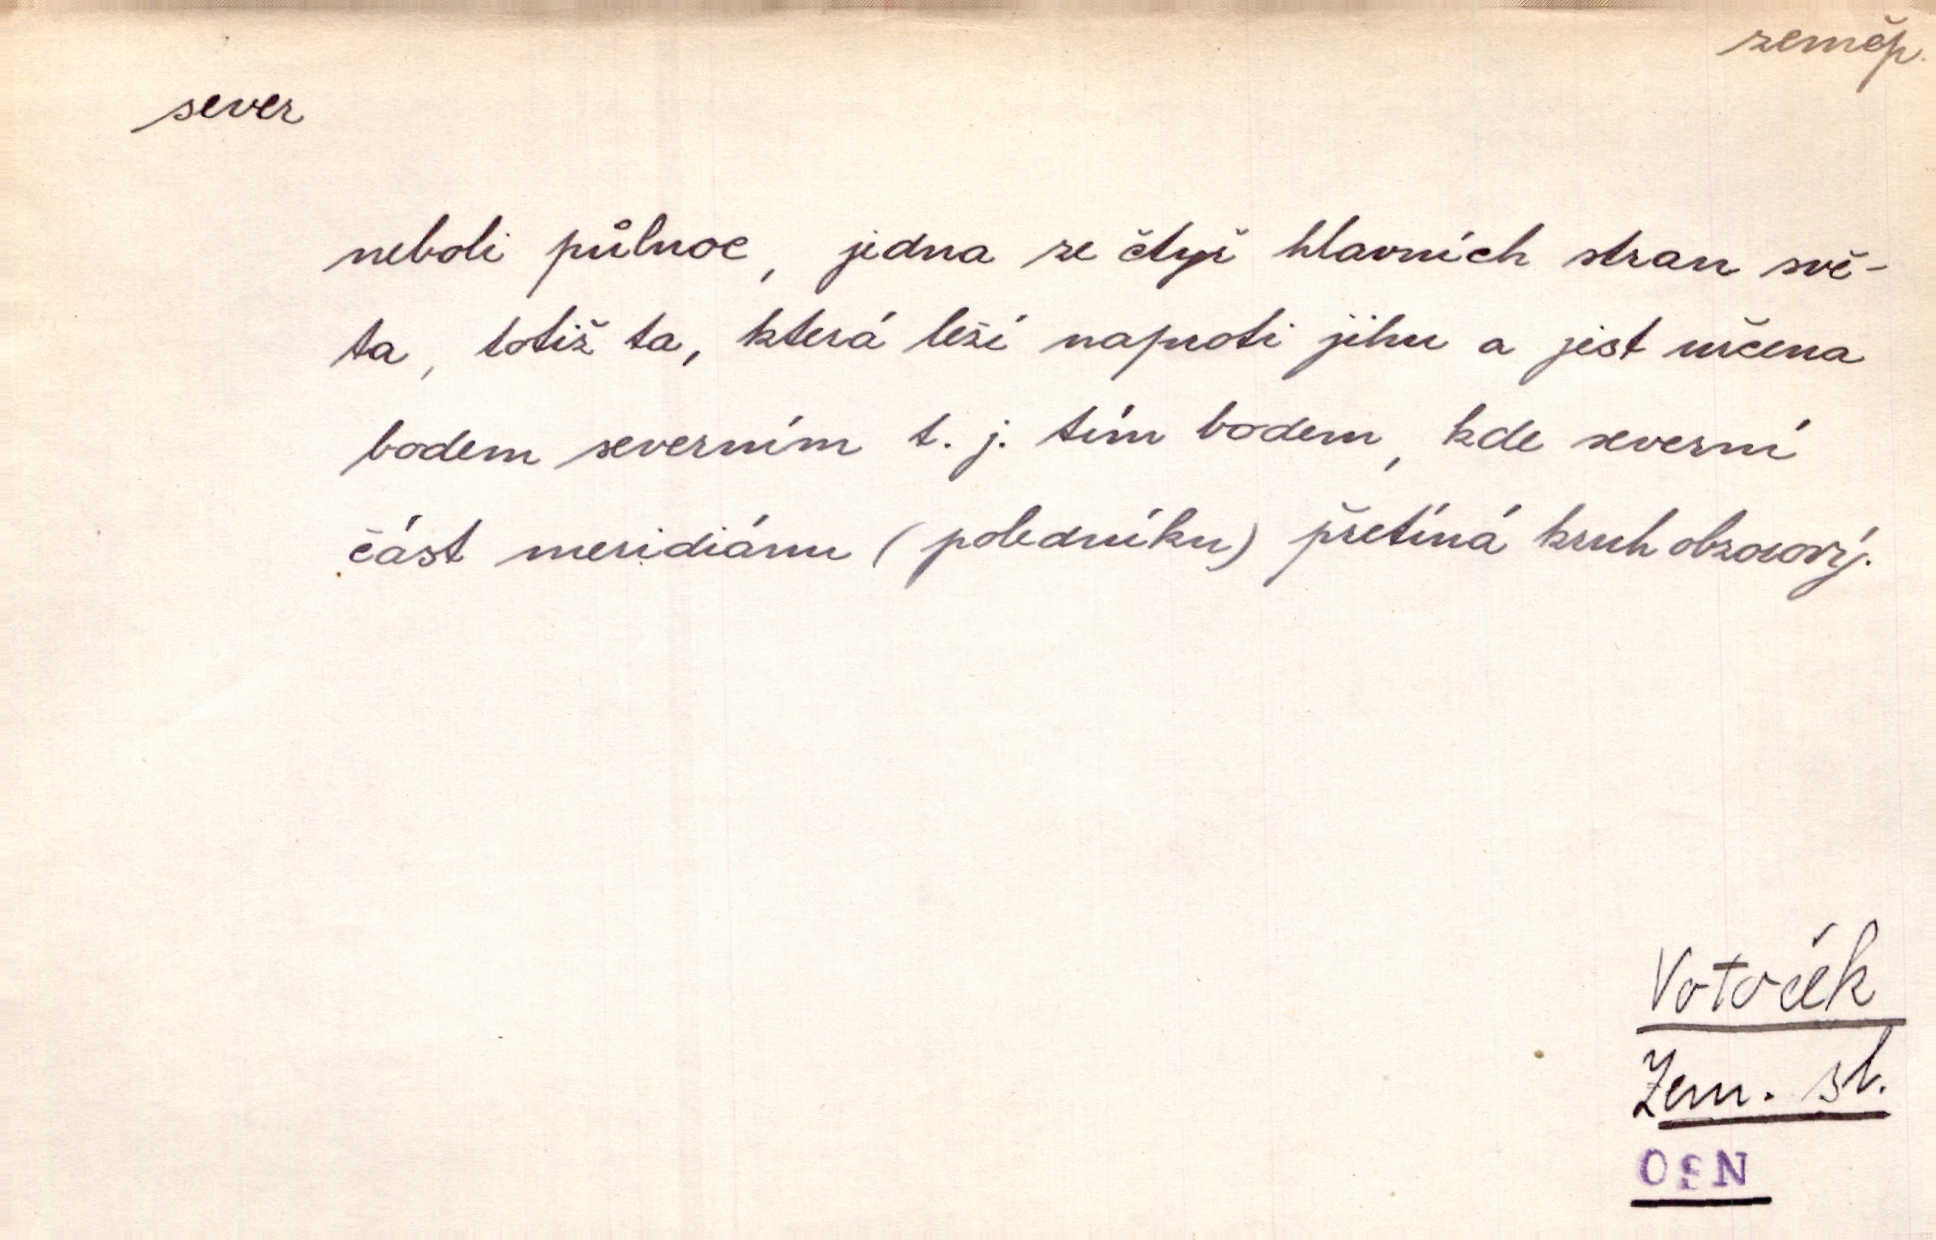 zeměp.
sever
neboli půlnoc, jedna ze čtyř hlavních stran svě-
ta, totiž ta, která leží naproti jihu a jest určena
bodem severním t. j. tím bodem, kde severní
část meridiánu (poledníku) přetíná kruh obzorový.
Votoček
Zem. sl.
OSN